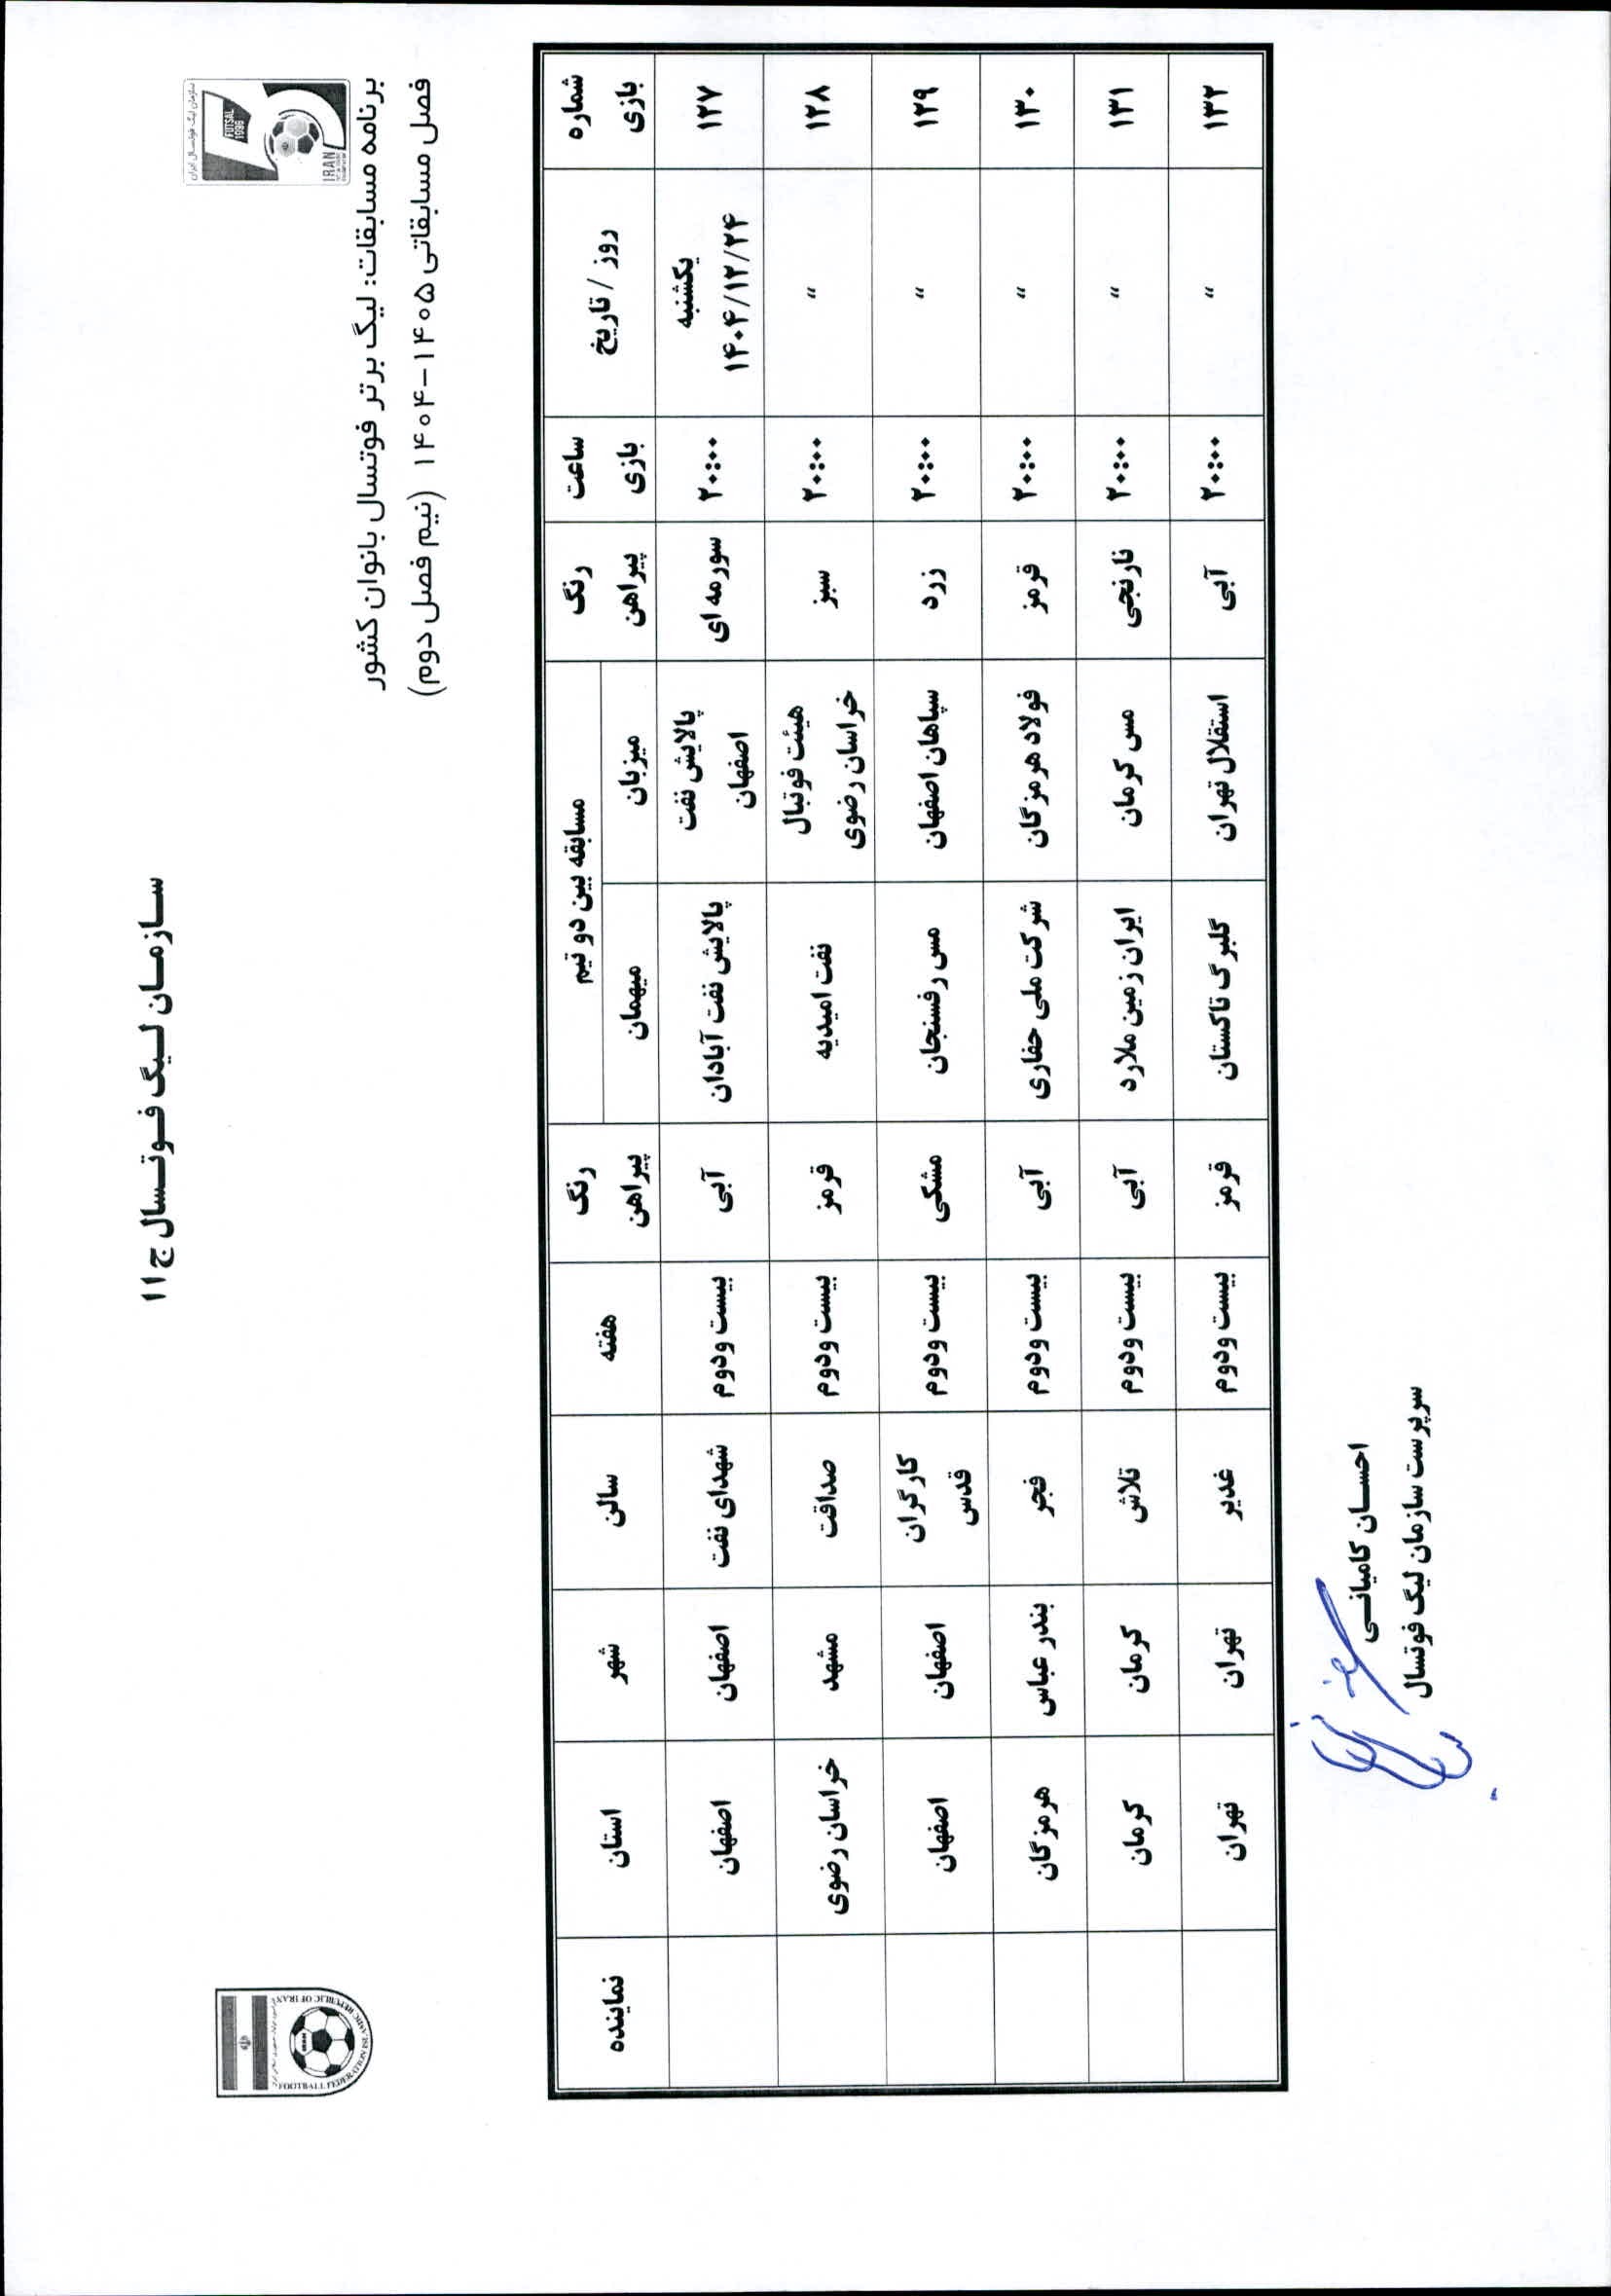 سازمان لیگ فوتسال ج ا ا
برنامه مسابقات: لیگ برتر فوتسال بانوان کشور
فصل مسابقاتی ۱۴۰۵-۱۴۰۴ (نیم فصل دوم)
FUTSAL
1996
IRAN
سازمان لیگ فوتسال ایران
FOOTBALL FEDERATION ISLAMIC REPUBLIC OF IRAN
شماره بازی | روز / تاریخ | ساعت بازی | رنگ پیراهن | مسابقه بین دو تیم | رنگ پیراهن | هفته | سالن | شهر | استان | نماینده
میزبان | میهمان
۱۲۷ | یکشنبه ۱۴۰۴/۱۲/۲۴ | ۲۰:۰۰ | سورمه ای | پالایش نفت اصفهان | پالایش نفت آبادان | آبی | بیست ودوم | شهدای نفت | اصفهان | اصفهان
۱۲۸ | " | ۲۰:۰۰ | سبز | هیئت فوتبال خراسان رضوی | نفت امیدیه | قرمز | بیست ودوم | صداقت | مشهد | خراسان رضوی
۱۲۹ | " | ۲۰:۰۰ | زرد | سپاهان اصفهان | مس رفسنجان | مشکی | بیست ودوم | کارگران قدس | اصفهان | اصفهان
۱۳۰ | " | ۲۰:۰۰ | قرمز | فولاد هرمزگان | شرکت ملی حفاری | آبی | بیست ودوم | فجر | بندر عباس | هرمزگان
۱۳۱ | " | ۲۰:۰۰ | نارنجی | مس کرمان | ایران زمین ملارد | آبی | بیست ودوم | تلاش | کرمان | کرمان
۱۳۲ | " | ۲۰:۰۰ | آبی | استقلال تهران | گلبرگ تاکستان | قرمز | بیست ودوم | غدیر | تهران | تهران
احسان کامیانی
سرپرست سازمان لیگ فوتسال